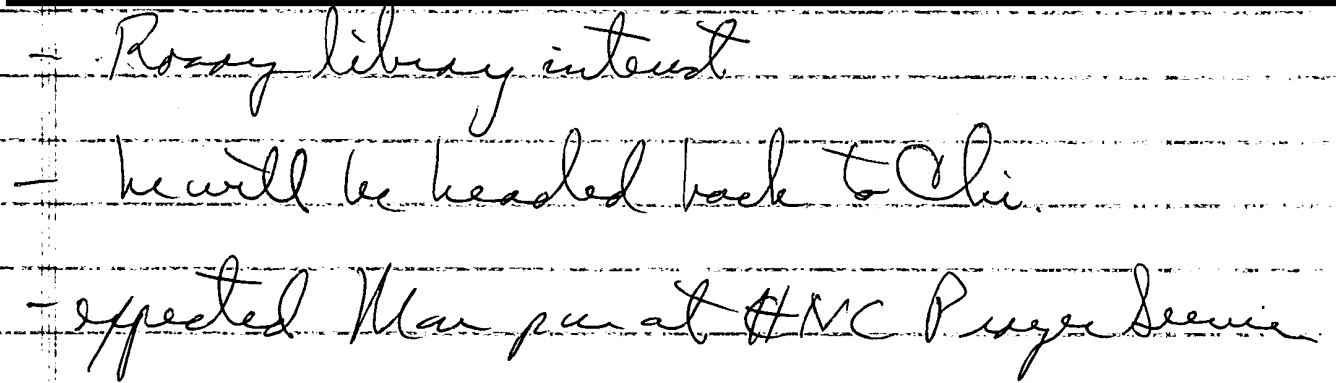 - Rosary library interest
- he will be headed back to Chi.
- expected Mon pm at HNC Prayer Service